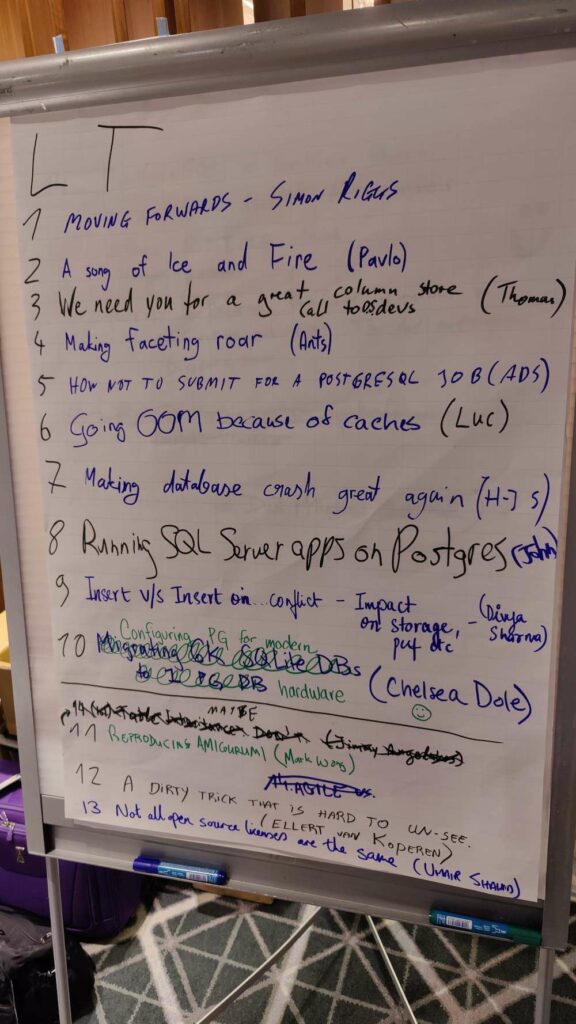 LT
1 MOVING FORWARDS - SIMON RIGGS
2 A song of Ice and Fire (Pavlo)
3 We need you for a great column store (Thomas)
Call to OS devs
4 Making faceting roar (Ants)
5 HOW NOT TO SUBMIT FOR A POSTGRESQL JOB (ADS)
6 Going OOM because of caches (Luc)
7 Making database crash great again (H-J S)
8 Running SQL Server apps on Postgres (John)
9 Insert v/s Insert on... conflict - Impact
on storage, - (Divya Sharma)
perf etc
10 Configuring PG for modern
hardware (Chelsea Dole)
MAYBE
11 REPRODUCING AMIGURUMI (Mark Wong)
12 A DIRTY TRICK THAT IS HARD TO UN-SEE.
(ELLERT VAN KOPEREN)
13 Not all open source licenses are the same (UMAIR SHAHID)